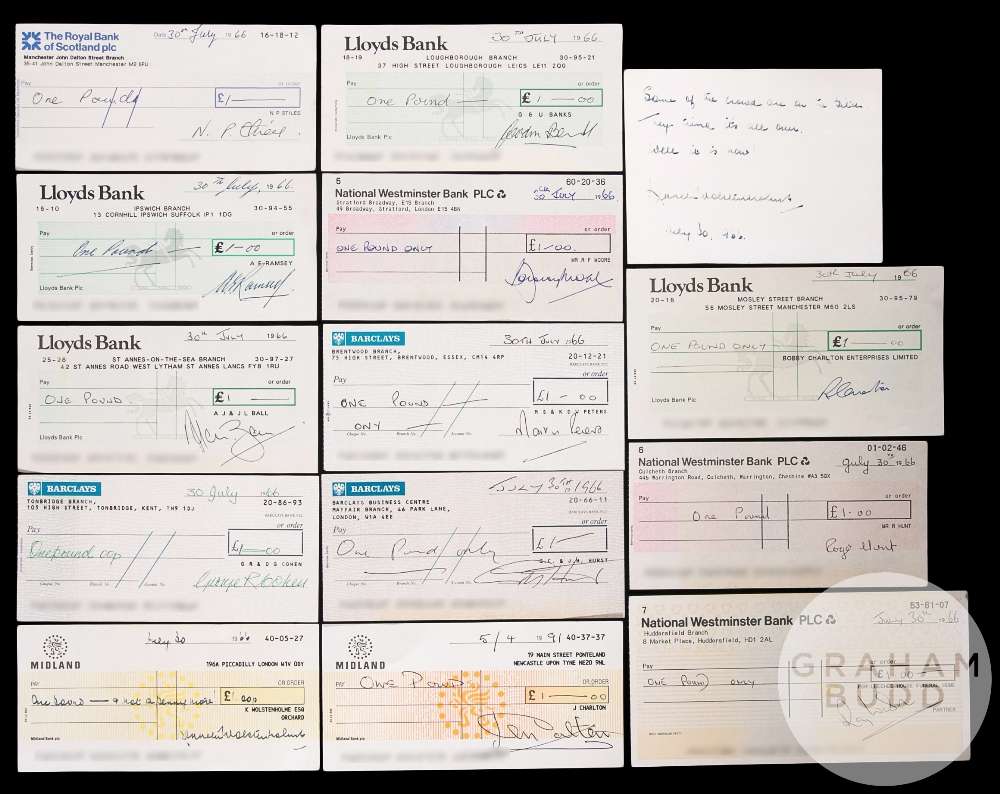 The Royal Bank
of Scotland plc
Date 30th July 1966 16-18-12
Manchester John Dalton Street Branch
38-41 John Dalton Street Manchester M2 6PU
Pay or order
One Pound £1
N P STILES
N. P. Stiles.
Lloyds Bank
30TH JULY 1966
18-19 LOUGHBOROUGH BRANCH 30-95-21
37 HIGH STREET LOUGHBOROUGH LEICS LE11 2QG
Pay or order
One Pound £1 00
G & U BANKS
Lloyds Bank Plc
Some of the crowd are on the pitch
They think its all over.
Well it is now!
Kenneth Wolstenholme
July 30, 1966.
Lloyds Bank
30TH July, 1966.
15-10 IPSWICH BRANCH 30-94-55
13 CORNHILL IPSWICH SUFFOLK IP1 1DG
Pay or order
One Pound £1-00
A E RAMSEY
Lloyds Bank Plc
5 60-20-36
National Westminster Bank PLC
30th JULY 1966
Stratford Broadway, E15 Branch
49 Broadway, Stratford, London E15 4BN
Pay or order
ONE POUND ONLY £1-00.
MR R F MOORE
Lloyds Bank
30th July 1966
20-16 MOSLEY STREET BRANCH 30-95-79
56 MOSLEY STREET MANCHESTER M60 2LS
Pay or order
ONE POUND ONLY £1 00
BOBBY CHARLTON ENTERPRISES LIMITED
Lloyds Bank Plc
Lloyds Bank
30th July 1966
25-26 ST ANNES-ON-THE-SEA BRANCH 30-97-27
42 ST ANNES ROAD WEST LYTHAM ST ANNES LANCS FY8 1RU
Pay or order
ONE POUND £1
A J & J L BALL
Lloyds Bank Plc
BARCLAYS 30TH JULY 1966
BRENTWOOD BRANCH,
79 HIGH STREET, BRENTWOOD, ESSEX, CM14 4RP 20-12-21
BARCLAYS BANK PLC
Pay or order
ONE POUND £1-00
ONY
M S & K D V PETERS
Cheque No. Branch No. Account No.
6 01-02-46
National Westminster Bank PLC
July 30TH 1966
Culcheth Branch
Warrington Road, Culcheth, Warrington, Cheshire WA3 5QX
Pay or order
One Pound £1-00
MR R HUNT
Roger Hunt
BARCLAYS 30 July 1966
TONBRIDGE BRANCH,
103 HIGH STREET, TONBRIDGE, KENT, TN9 1DJ 20-86-93
BARCLAYS BANK PLC
Pay or order
One pound £1-00
G R & D S COHEN
George R Cohen
Cheque No. Branch No. Account No.
BARCLAYS July 30TH 1966
BARCLAYS BUSINESS CENTRE
MAYFAIR BRANCH, 46 PARK LANE,
LONDON, W1A 4EE 20-66-11
BARCLAYS BANK PLC
Pay or order
One Pound only £1
G.C. & J.H. HURST
Cheque No. Branch No. Account No.
7 53-61-07
National Westminster Bank PLC
July 30th 1966
Huddersfield Branch
8 Market Place, Huddersfield, HD1 2AL
Pay or order
ONE POUND ONLY £1-00
PARTNER
MIDLAND
July 30 1966 40-05-27
196A PICCADILLY LONDON W1V 0DY
PAY OR ORDER
One pound — & not a penny more £1 00p
K WOLSTENHOLME ESQ
ORCHARD
Kenneth Wolstenholme
Midland Bank plc
MIDLAND
5/4 1991 40-37-37
19 MAIN STREET PONTELAND
NEWCASTLE UPON TYNE NE20 9NL
PAY OR ORDER
One Pound £1-00
J CHARLTON
Midland Bank plc
GRAHAM
BUDD